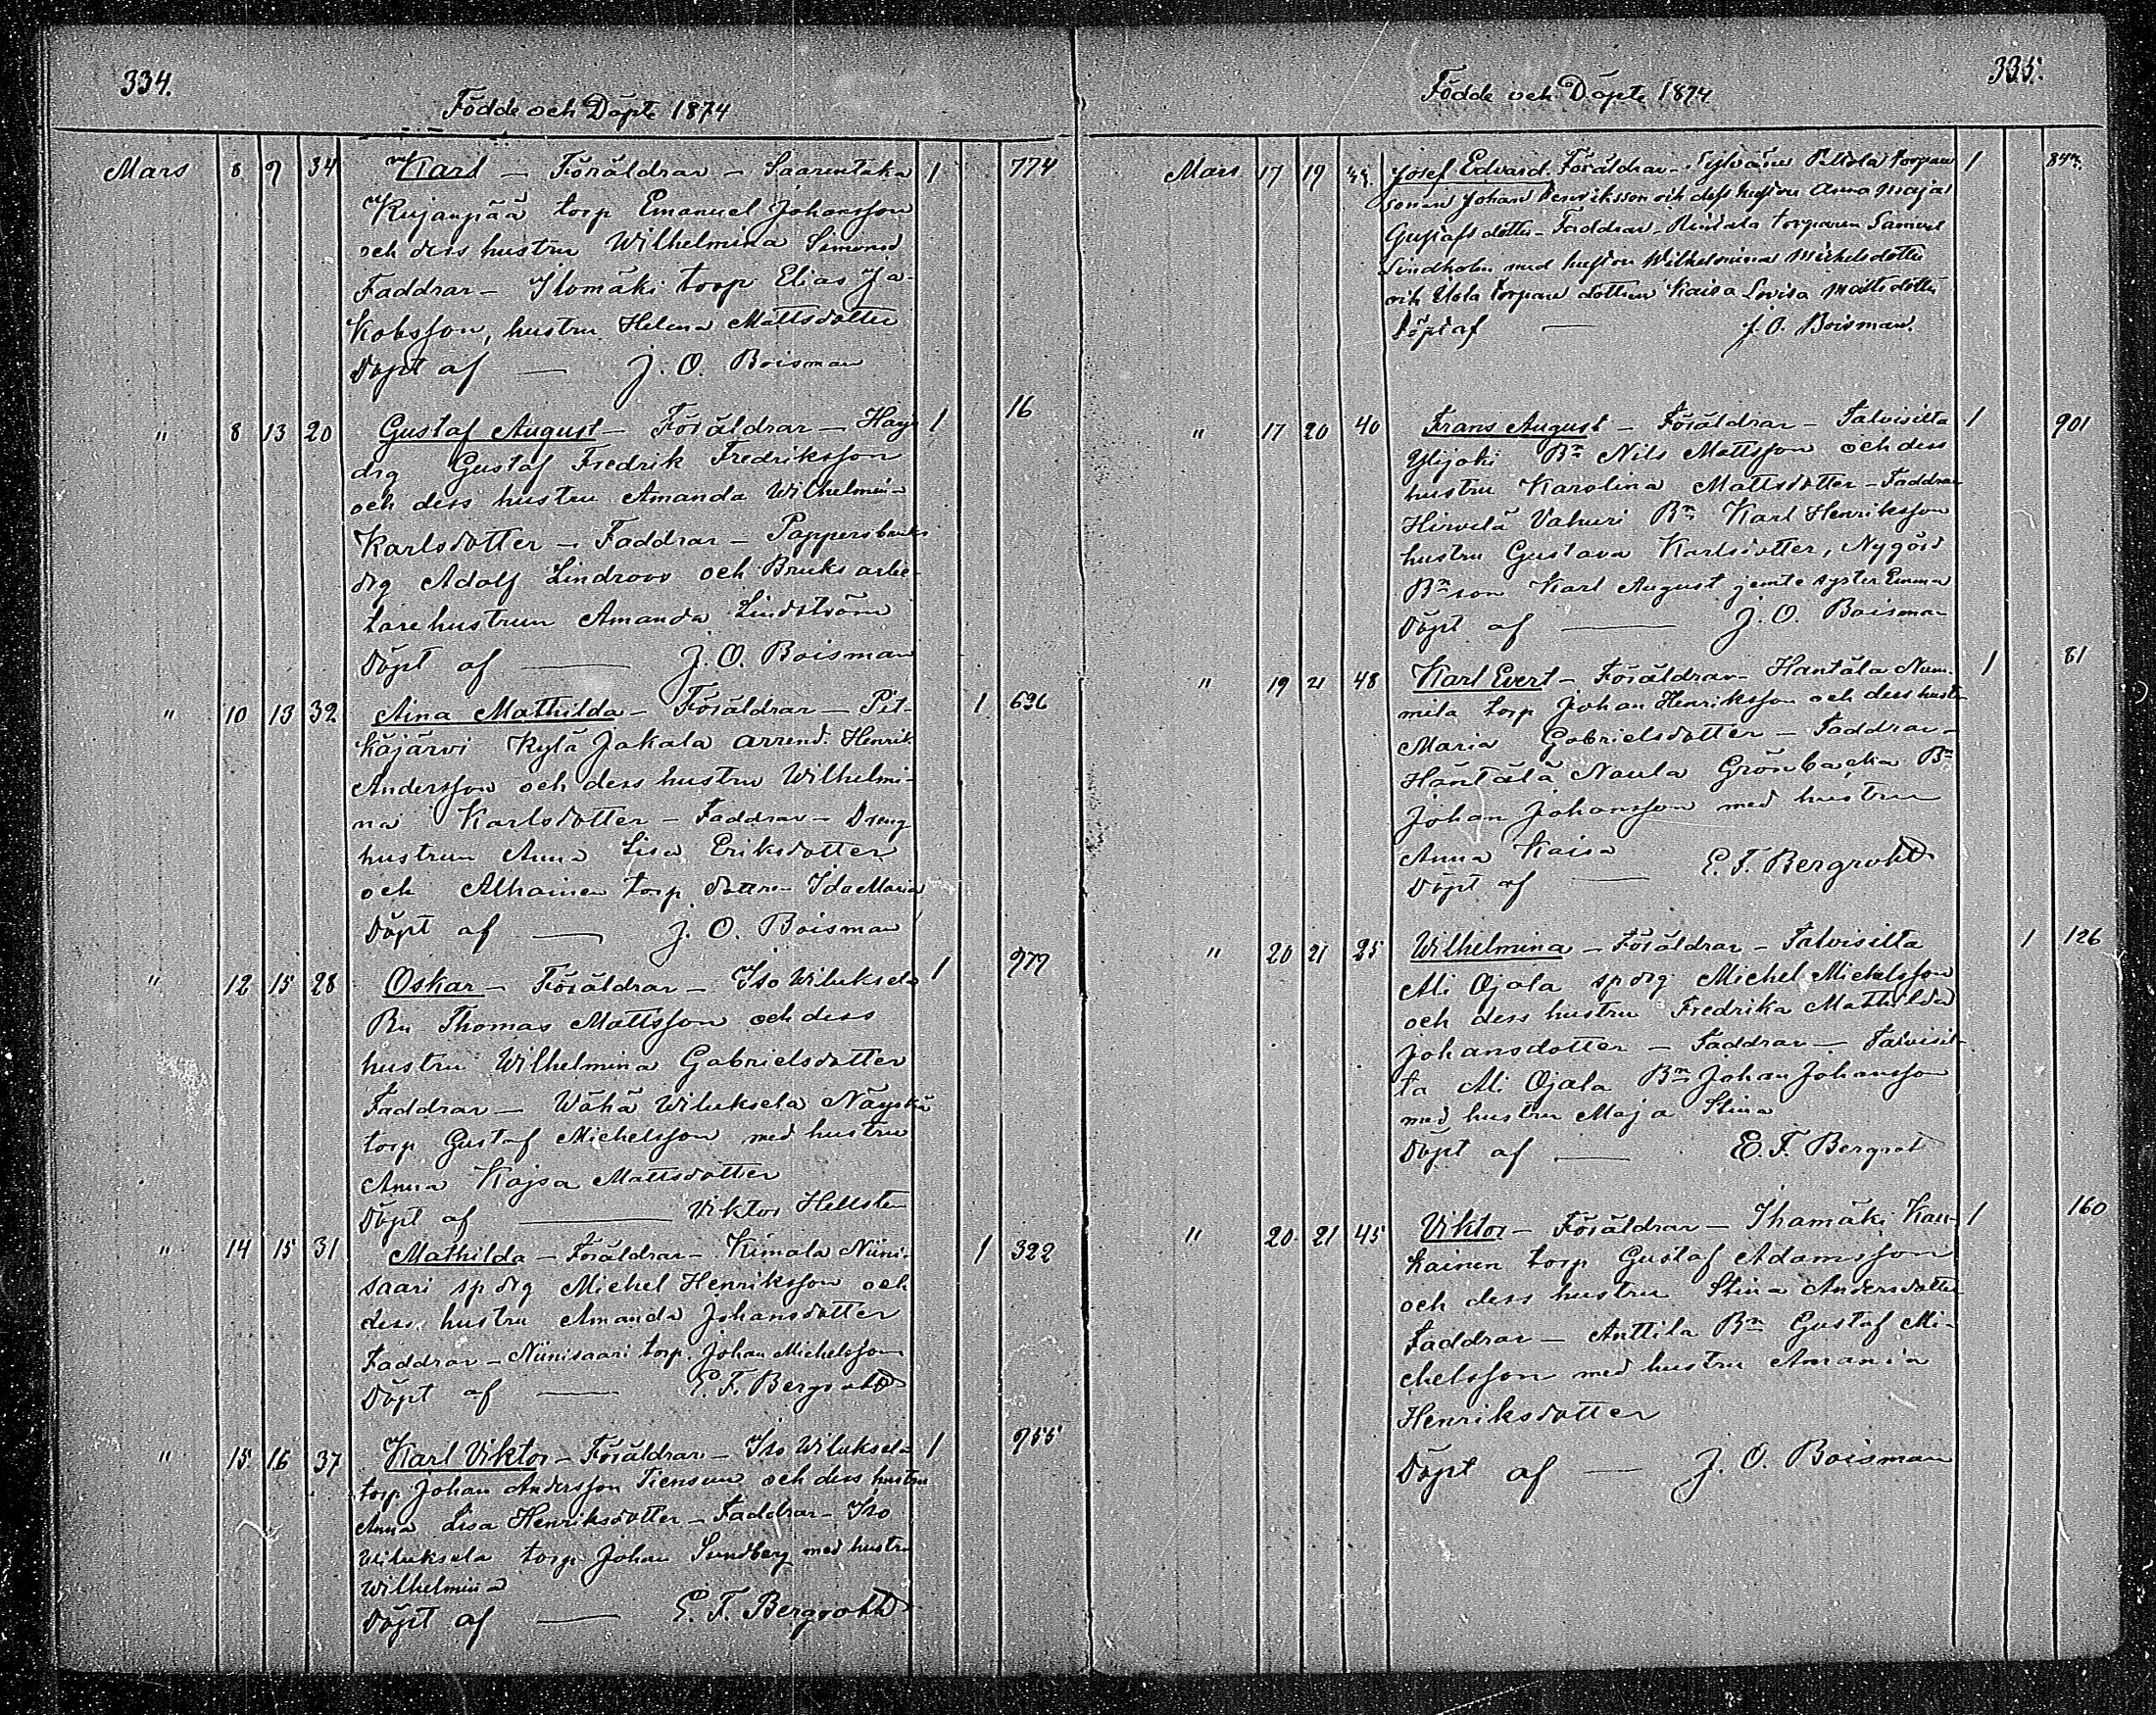 334.
Födde och Döpte 1874
Mars 8 9 34 Karl – Föräldrar – Saarentaka 1 774
Kujanpää torp Emanuel Johansson
och dess hustru Wilhelmina Simonsd
Faddrar – Ilomäki torp Elias Ja-
kobsson, hustru Helena Mattsdotter
Döpt af — J. O. Boisman
" 8 13 20 Gustaf August – Föräldrar – Haga 1 16
drg Gustaf Fredrik Fredriksson
och dess hustru Amanda Wilhelmina
Karlsdotter – Faddrar – Pappersbruks
drg Adolf Lindroos och Bruks arbe-
tarehustrun Amanda Lindström
Döpt af — J. O. Boisman
" 10 13 32 Aina Mathilda – Föräldrar – Pit- 1 696
käjärvi Kylä Jakala arrend. Henrik
Andersson och dess hustru Wilhelmi-
na Karlsdotter – Faddrar – Dreng
hustrun Anna Lisa Eriksdotter
och Alhainen torp. dottren Ida Maria
Döpt af — J. O. Boisman
" 12 15 28 Oskar – Föräldrar – Iso Wiluksela 1 979
Bn Thomas Mattsson och dess
hustru Wilhelmina Gabrielsdotter
Faddrar – Wähä Wiluksela Näyskä
torp Gustaf Michelsson med hustru
Anna Kajsa Mattsdotter
Döpt af — Viktor Hellsten
" 14 15 31 Mathilda – Föräldrar – Kimala Niini- 1 322
saari sp drg Michel Henriksson och
dess hustru Amanda Johansdotter
Faddrar – Niinisaari torp. Johan Michelsson
Döpt af — E. F. Bergroth
" 15 16 37 Karl Viktor – Föräldrar – Iso Wiluksela 1 955
torp Johan Andersson Tiensuu och dess hustru
Anna Lisa Henriksdotter – Faddrar – Iso
Wiluksela torp Johan Sundberg med hustru
Wilhelmina
Döpt af — E. F. Bergroth
335.
Födde och Döpte 1874
Mars 17 19 Josef Edvard. Föräldrar – Pillola torpare 1
sonen Johan Henriksson och dess hustru Anna Maja
Gustafsdotter – Faddrar – torparen Samuel
Lindholm med hustru Wilhelmina Mickelsdotter
och torpare dottren Kaisa Lovisa Mattsdotter
Döpt af — J. O. Boisman.
" 17 20 40 Frans August – Föräldrar – Talvisilta 1 901
Ylijoki Bn Nils Mattsson och dess
hustru Karolina Mattsdotter – Faddrar
Hirvelä Vahuri Bn Karl Henriksson
hustru Gustava Karlsdotter, Nygård
Bn son Karl August jemte syster Emma
Döpt af — J. O. Boisman
" 19 21 48 Karl Evert – Föräldrar – Hantäla Num- 1 81
mila torp Johan Henriksson och dess hustru
Maria Gabrielsdotter – Faddrar –
Häntälä Naula Grönbacka Bn
Johan Johansson med hustru
Anna Kaisa
Döpt af — E. F. Bergroth
" 20 21 25 Wilhelmina – Föräldrar – Talvisilta 1 126
Ali Ojala sp drg Michel Michelsson
och dess hustru Fredrika Mathilda
Johansdotter – Faddrar – Talvisil-
ta Ali Ojala Bn Johan Johansson
med hustru Maja Stina
Döpt af — E. F. Bergrot
" 20 21 45 Viktor – Föräldrar – Ihamäki Kau- 1 160
kainen torp Gustaf Adamsson
och dess hustru Stina Andersdotter
Faddrar – Anttila Bn Gustaf Mi-
chelsson med hustru Amanda
Henriksdotter
Döpt af — J. O. Boisman